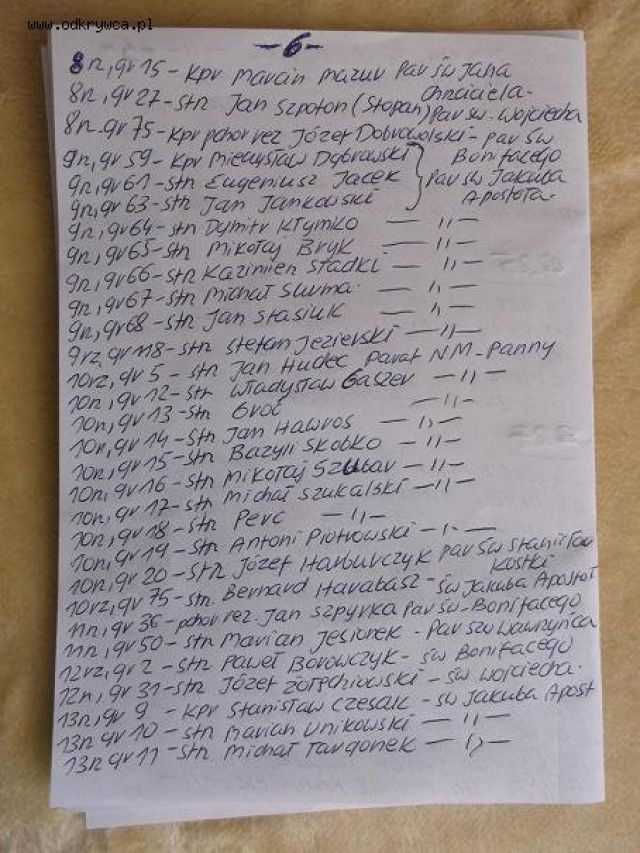 www.odkrywca.pl
-6-
8rz, gr 15 - Kpr Marcin Mazur Par Św Jana
Chrzciciela.
8rz, gr 27 - Strz Jan Szpoton (Stopan) Par św. Wojciecha
8rz - gr 75 - Kpr pchor rez Józef Dobrowolski - par św
Bonifacego
9rz, gr 59 - Kpr Mieczysław Dąbrowski
9rz, gr 61 - Strz Eugeniusz Jacek Par św Jakuba
9rz, gr 63 - Strz Jan Jankowski Apostoła.
9rz, gr 64 - Strz Dymitr Kłymko — ,, —
9rz, gr 65 - Strz Mikołaj Bryk — ,, —
9rz, gr 66 - Strz Kazimierz Stadki — ,, —
9rz, gr 67 - Strz Michał Surma — ,, —
9rz, gr 68 - Strz Jan Stasiuk — ,, —
9rz, gr 118 - Strz Stefan Jezierski — ,, —
10rz, gr 5 - Strz Jan Hudec Paraf NM - Panny
10rz, gr 12 - Strz Władysław Gaszer — ,, —
10rz, gr 13 - Strz Groć — ,, —
10rz, gr 14 - Strz Jan Hawros — ,, —
10rz, gr 15 - Strz Bazyli Skobko — ,, —
10rz, gr 16 - Strz Mikołaj Szubar — ,, —
10rz, gr 17 - Strz Michał Szukalski — ,, —
10rz, gr 18 - Strz Perc — ,, —
10rz, gr 19 - Strz Antoni Piotrowski — ,, —
10rz, gr 20 - Strz Józef Harburczyk Par Św Stanisława
Kostki
10rz, gr 75 - Strz. Bernard Harabasz - Św Jakuba Apostoł
11rz, gr 36 - pchor rez. Jan Szpyrka Par św - Bonifacego
11rz, gr 50 - Strz Marian Jesionek - Par św Wawrzyńca
12rz, gr 2 - Strz Paweł Borowczyk - św Bonifacego
12rz, gr 31 - Strz Józef Żołęchiowski - św Wojciecha.
13rz, gr 9 - Kpr Stanisław Czesak - św Jakuba Apost
13rz gr 10 - Strz Marian Unikowski — ,, —
13rz gr 11 - Strz Michał Targonek — ,, —